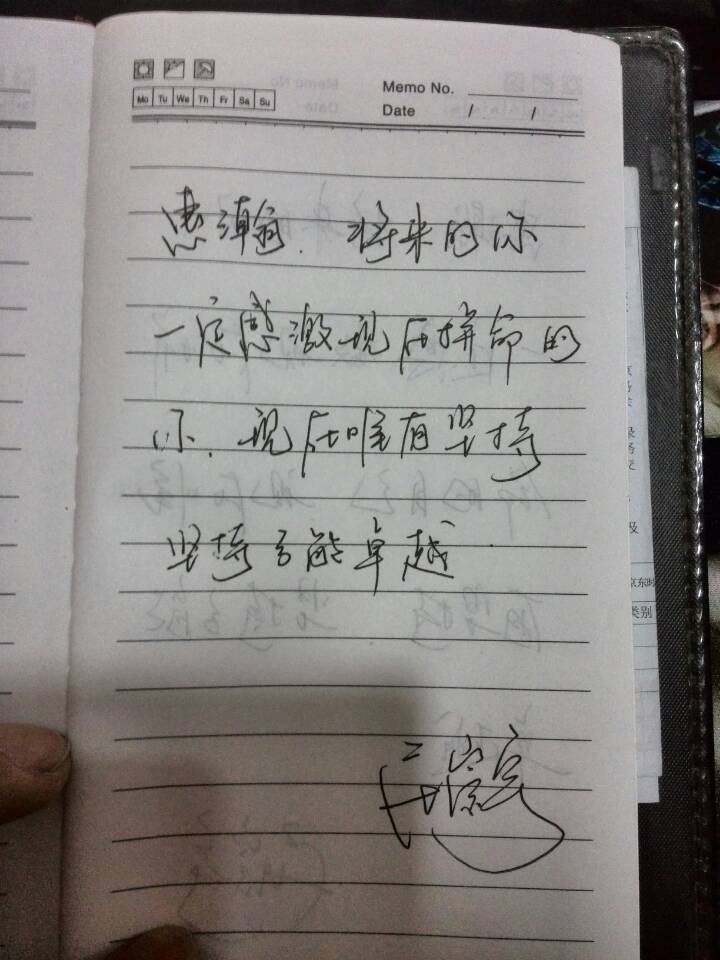 Mo Tu We Th Fr Sa Su
Memo No.
Date / /
惠瀚.将来的你
一定感激现在拼命的
你.现在唯有坚持
坚持方能卓越
京东时
类别